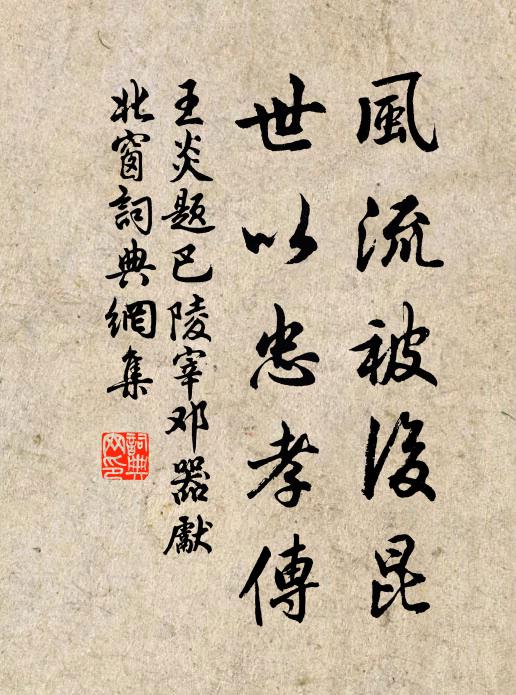 風流被後昆
世以忠孝傳
王炎题巴陵宰邓器獻
北窗詞典網集
詞典网印